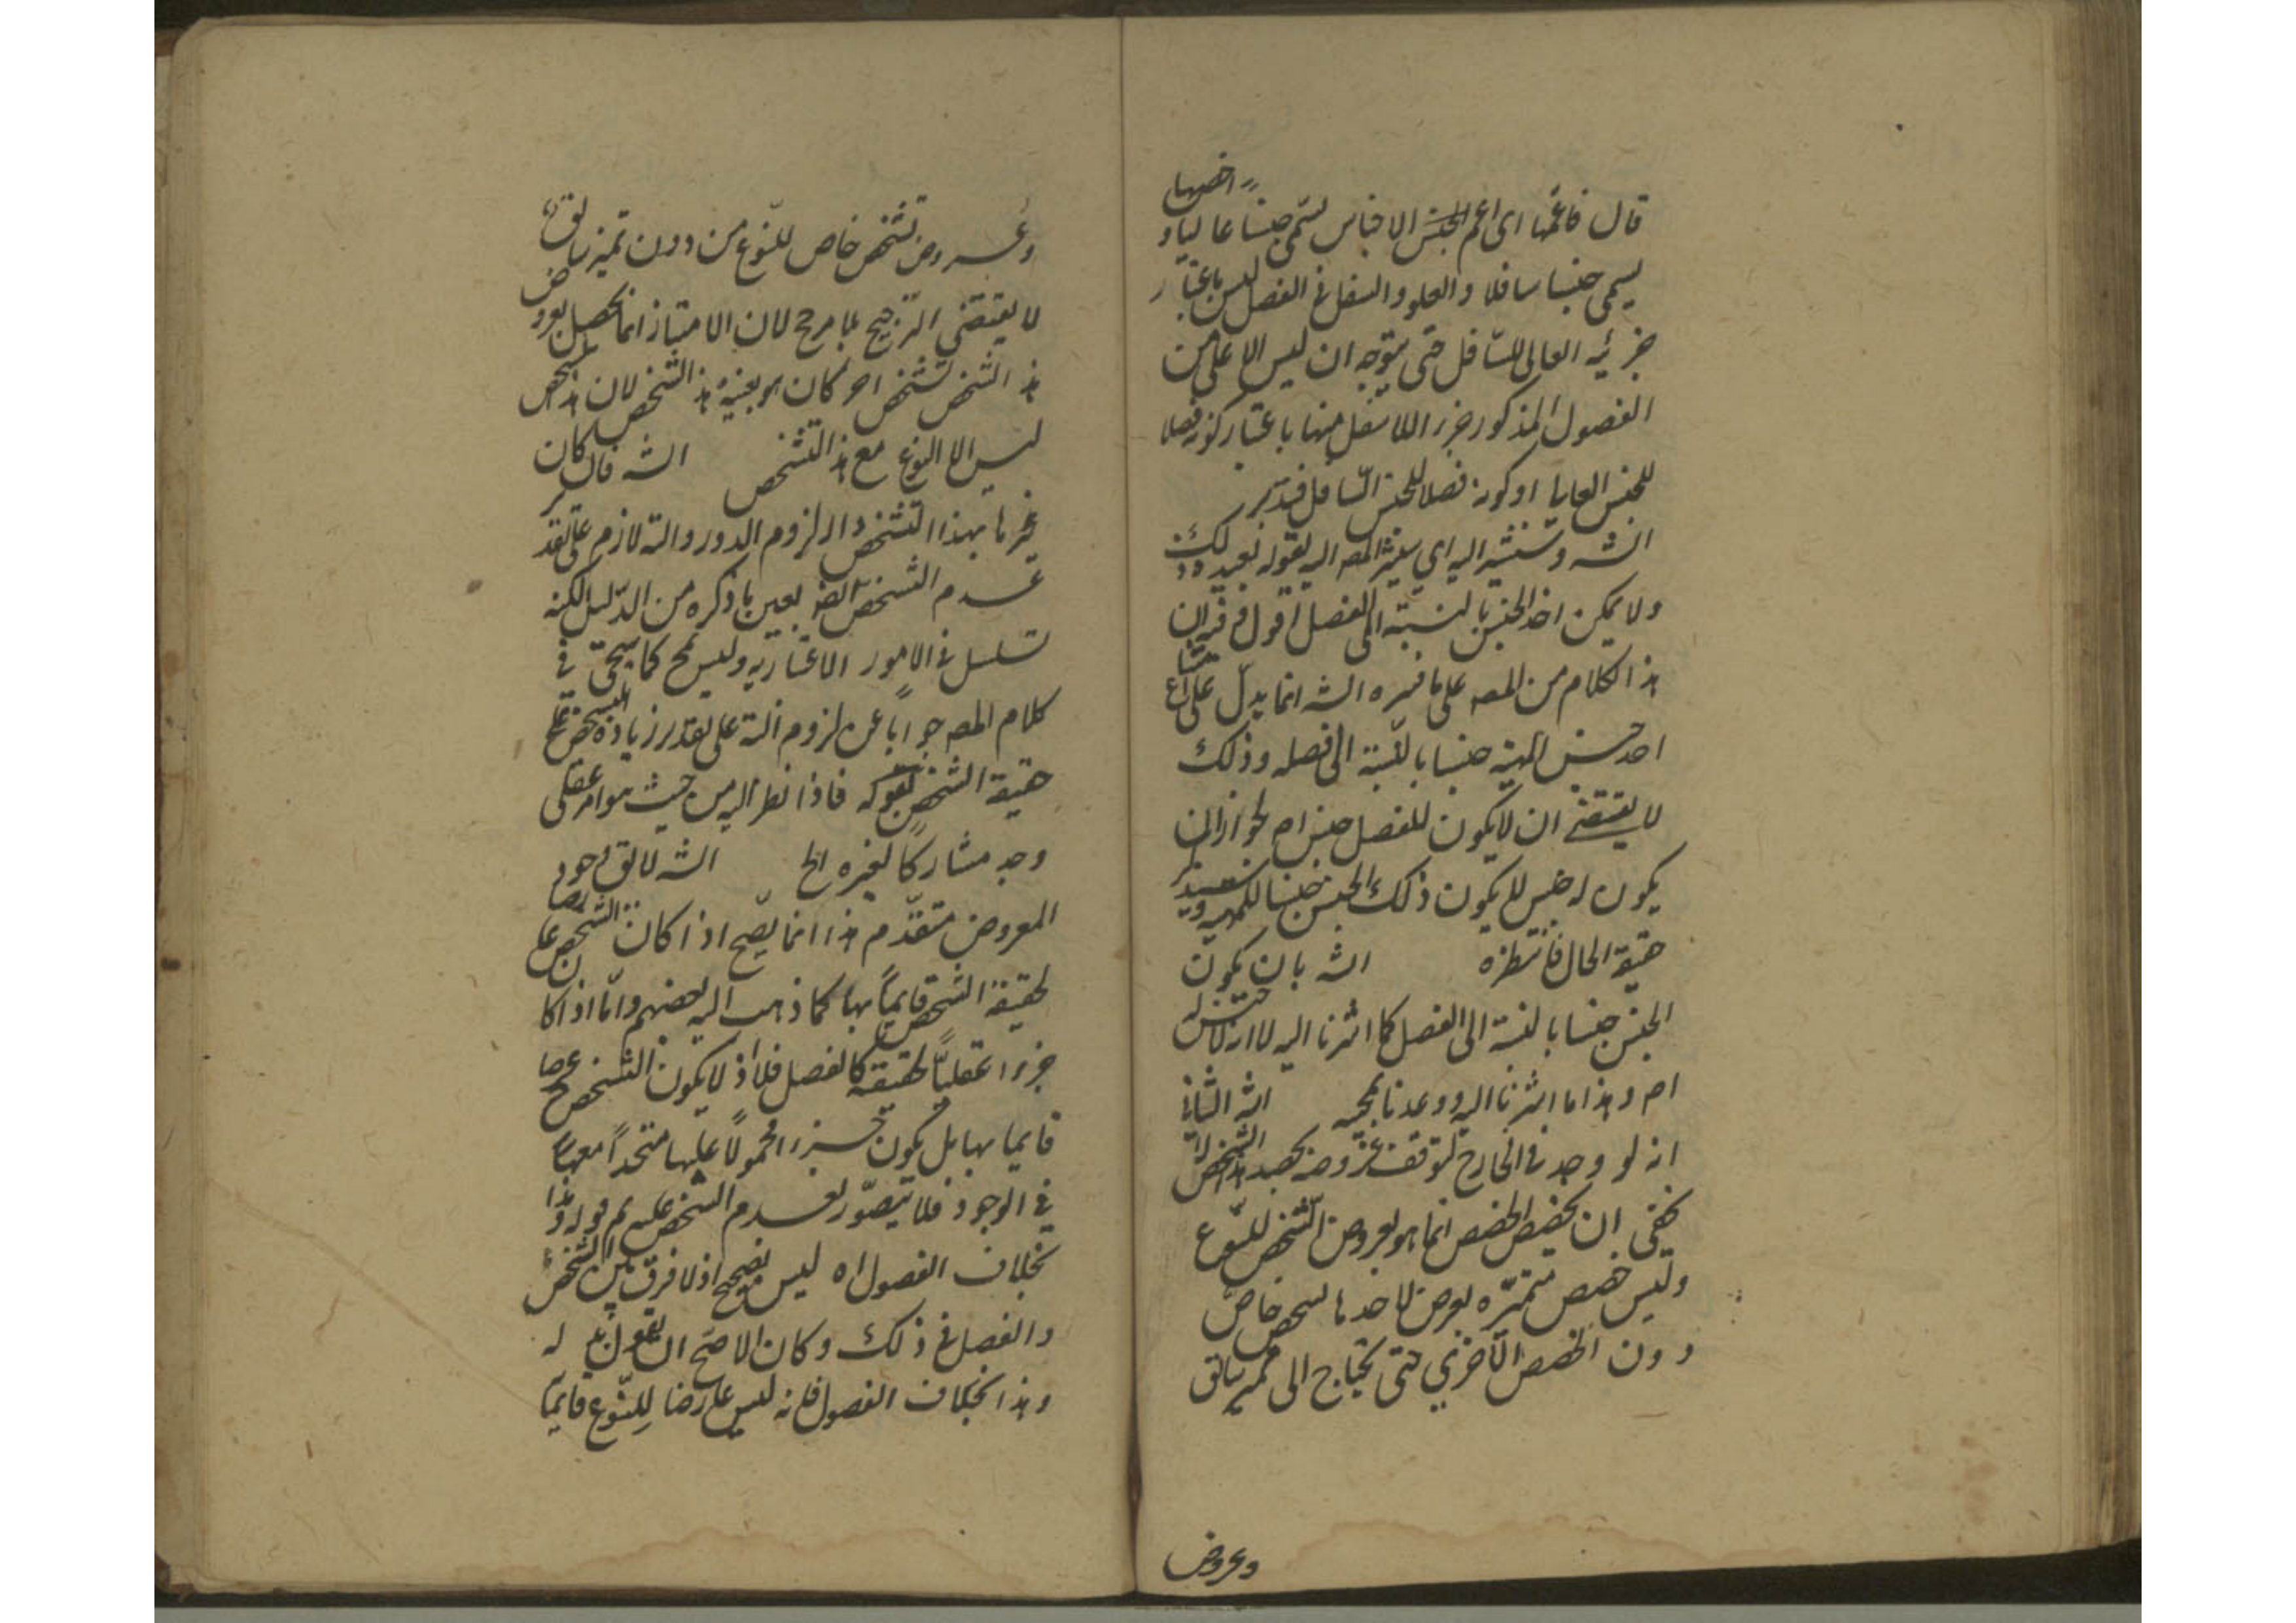 قال فاعمها اى اعم الجنس الاجناس يسمى جنسا عاليا و اخصها
يسمى جنسا سافلا والعلو والسفل فى الفصل ليس باعتبار
جزئية العالى للسافل حتى يتوجه ان ليس الاعلى من
الفصول المذكور جزء اللاسفل منها باعتبار كونه فصلا
للجنس العالى او كونه فصلا للجنس السافل فتدبر
الشه وستشير اليه اى يشير المصه اليه بقوله بعيد ذلك
ولا يمكن اخذ الجنس بالنسبة الى الفصل اقول فيه ان
هذا الكلام من المصه على ما فسره الشه انما يدل على امتناع
اخذ جنس المهية جنسا بالنسبة الى فصله وذلك
لا يقتضى ان لا يكون للفصل جنس اصلا لجواز ان
يكون له جنس لا يكون ذلك الجنس جنسا للمهية
حقيقة الحال فانتظره الشه بان يكون
الجنس جنسا بالنسبة الى الفصل كما اشرنا اليه لا انه لا جنس له
اصم وهذا ما اشرنا اليه ووعدنا بمجيئه الشه الثانى
انه لو وجد فى الخارج لتوقف عروضه لحصة هذا الشخص لا
يخفى ان تحصص الحصص انما هو بعروض التشخص للنوع
وليس حصص متميزه يعرض لاحدها تشخص خاص
دون الحصص الاخرى حتى يحتاج الى تميز سابق
وعروض
وعروض تشخص خاص للنوع من دون تميز سابق
لا يقتضى الترجيح بلا مرجح لان الامتياز انما يحصل بعروض
هذا التشخص تشخص اخر كان هو بعينه هذا الشخص لان هذا الشخص
ليس الا النوع مع هذا التشخص الشه فان كان
غيرها بهذا التشخص دار لزوم الدور والتسه لازم على تقدير
عدم التشخص ايضا بعين ما ذكره من الدليل لكنه
تسلسل فى الامور الاعتبارية وليس بمح كما سيجئ فى
كلام المصه جوابا عن لزوم التسه على تقدير زيادة التشخص على
حقيقة الشخص بقوله فاذا نظر اليه من حيث هو امر عقلى
وجد مشاركا لغيره الخ الشه لا يق وجود
المعروض متقدم هذا انما يصح اذا كان التشخص عارضا
لحقيقة الشخص قايما بها كما ذهب اليه بعضهم واما اذا كان
جزءا عقليا لحقيقة كالفصل فلا اذ لا يكون التشخص ح عارضا
قايما بها بل يكون جزءا محمولا عليها متحدا معها
فى الوجود فلا يتصور تقدم الشخص عليه ثم قوله وهذا
بخلاف الفصول اه ليس بصحيح اذ لا فرق بين التشخص
والفصل فى ذلك وكان الاصح ان يقول بدله
وهذا بخلاف الفصول فانه ليس عارضا للنوع قايما